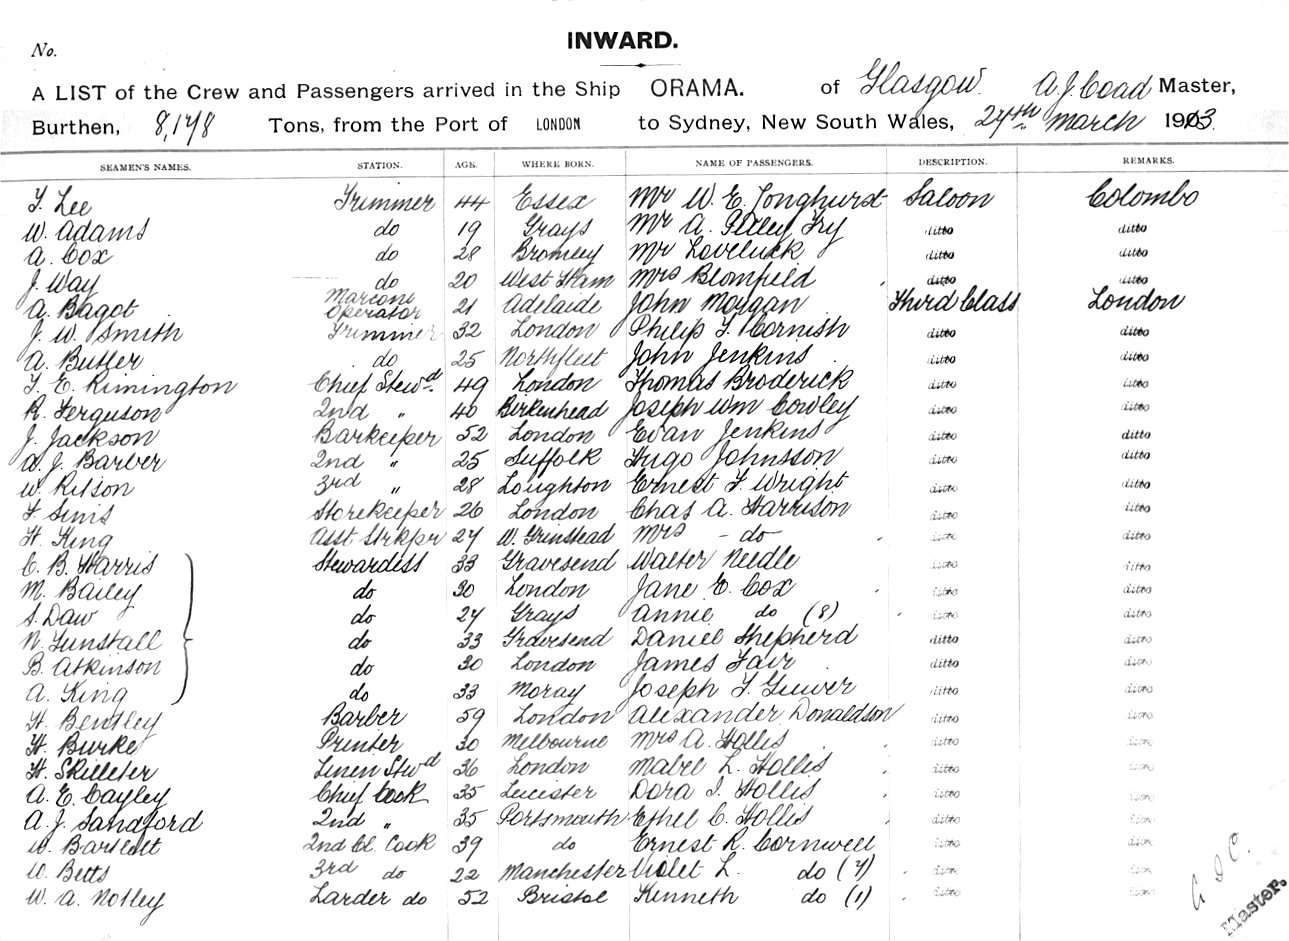 INWARD.
No.
A LIST of the Crew and Passengers arrived in the Ship ORAMA. of Glasgow. A. J. Coad Master,
Burthen, 8,178 Tons, from the Port of LONDON to Sydney, New South Wales, 27th March 1913.
SEAMEN'S NAMES. STATION. AGE. WHERE BORN. NAME OF PASSENGERS. DESCRIPTION. REMARKS.
T. Lee Trimmer 44 Essex Mr W. E. Longhurst Saloon Colombo
W. Adams do 19 Grays Mr A. Fry ditto ditto
A. Cox do 28 Bromley Mr Loveluck ditto ditto
J. Way do 20 West Ham Mrs Blomfield ditto ditto
A. Bagot Marconi Operator 21 Adelaide John Morgan Third Class London
J. W. Smith Trimmer 32 London Philip T. Cornish ditto ditto
A. Butler do 25 Northfleet John Jenkins ditto ditto
T. E. Rimington Chief Stewd 49 London Thomas Broderick ditto ditto
R. Ferguson 2nd " 40 Birkenhead Joseph Wm Cowley ditto ditto
J. Jackson Barkeeper 52 London Evan Jenkins ditto ditto
A. J. Barber 2nd " 25 Suffolk Hugo Johnsson ditto ditto
W. Rilson 3rd " 28 Loughton Ernest F. Wright ditto ditto
F. Simis Storekeeper 26 London Chas A. Harrison ditto ditto
H. King Asst Strkpr 27 W. Grinstead Mrs - do ditto ditto
C. B. Harris Stewardess 33 Gravesend Walter Needle ditto ditto
M. Bailey do 30 London Jane E. Cox ditto ditto
S. Daw do 27 Grays Annie do (8) ditto ditto
N. Tunstall do 33 Gravesend Daniel Shepherd ditto ditto
B. Atkinson do 30 London James Fair ditto ditto
A. King do 33 Moray Joseph T. Guwer ditto ditto
H. Bentley Barber 59 London Alexander Donaldson ditto ditto
H. Burke Printer 30 Melbourne Mrs A. Hollis ditto ditto
H. Skilleter Linen Stwd 36 London Mabel L. Hollis ditto ditto
A. E. Cayley Chief Cook 35 Leicester Dora I. Hollis ditto ditto
A. J. Sandford 2nd " 35 Portsmouth Ethel C. Hollis ditto ditto
W. Bartlett 2nd Cl. Cook 39 do Ernest R. Cornwell ditto ditto
W. Betts 3rd do 22 Manchester Violet L. do (7) ditto ditto
W. A. Notley Larder do 52 Bristol Kenneth do (1) ditto ditto
Master.